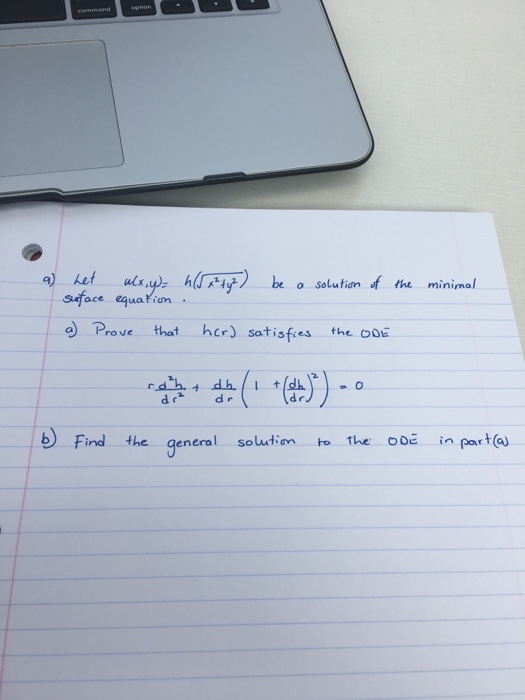 command option
a) Let u(x,y)= h(√x²+y²) be a solution of the minimal
suface equation .
a) Prove that h(r) satisfies the ODE
r d²h/dr² + dh/dr (1 + (dh/dr)²) = 0
b) Find the general solution to the ODE in part(a)